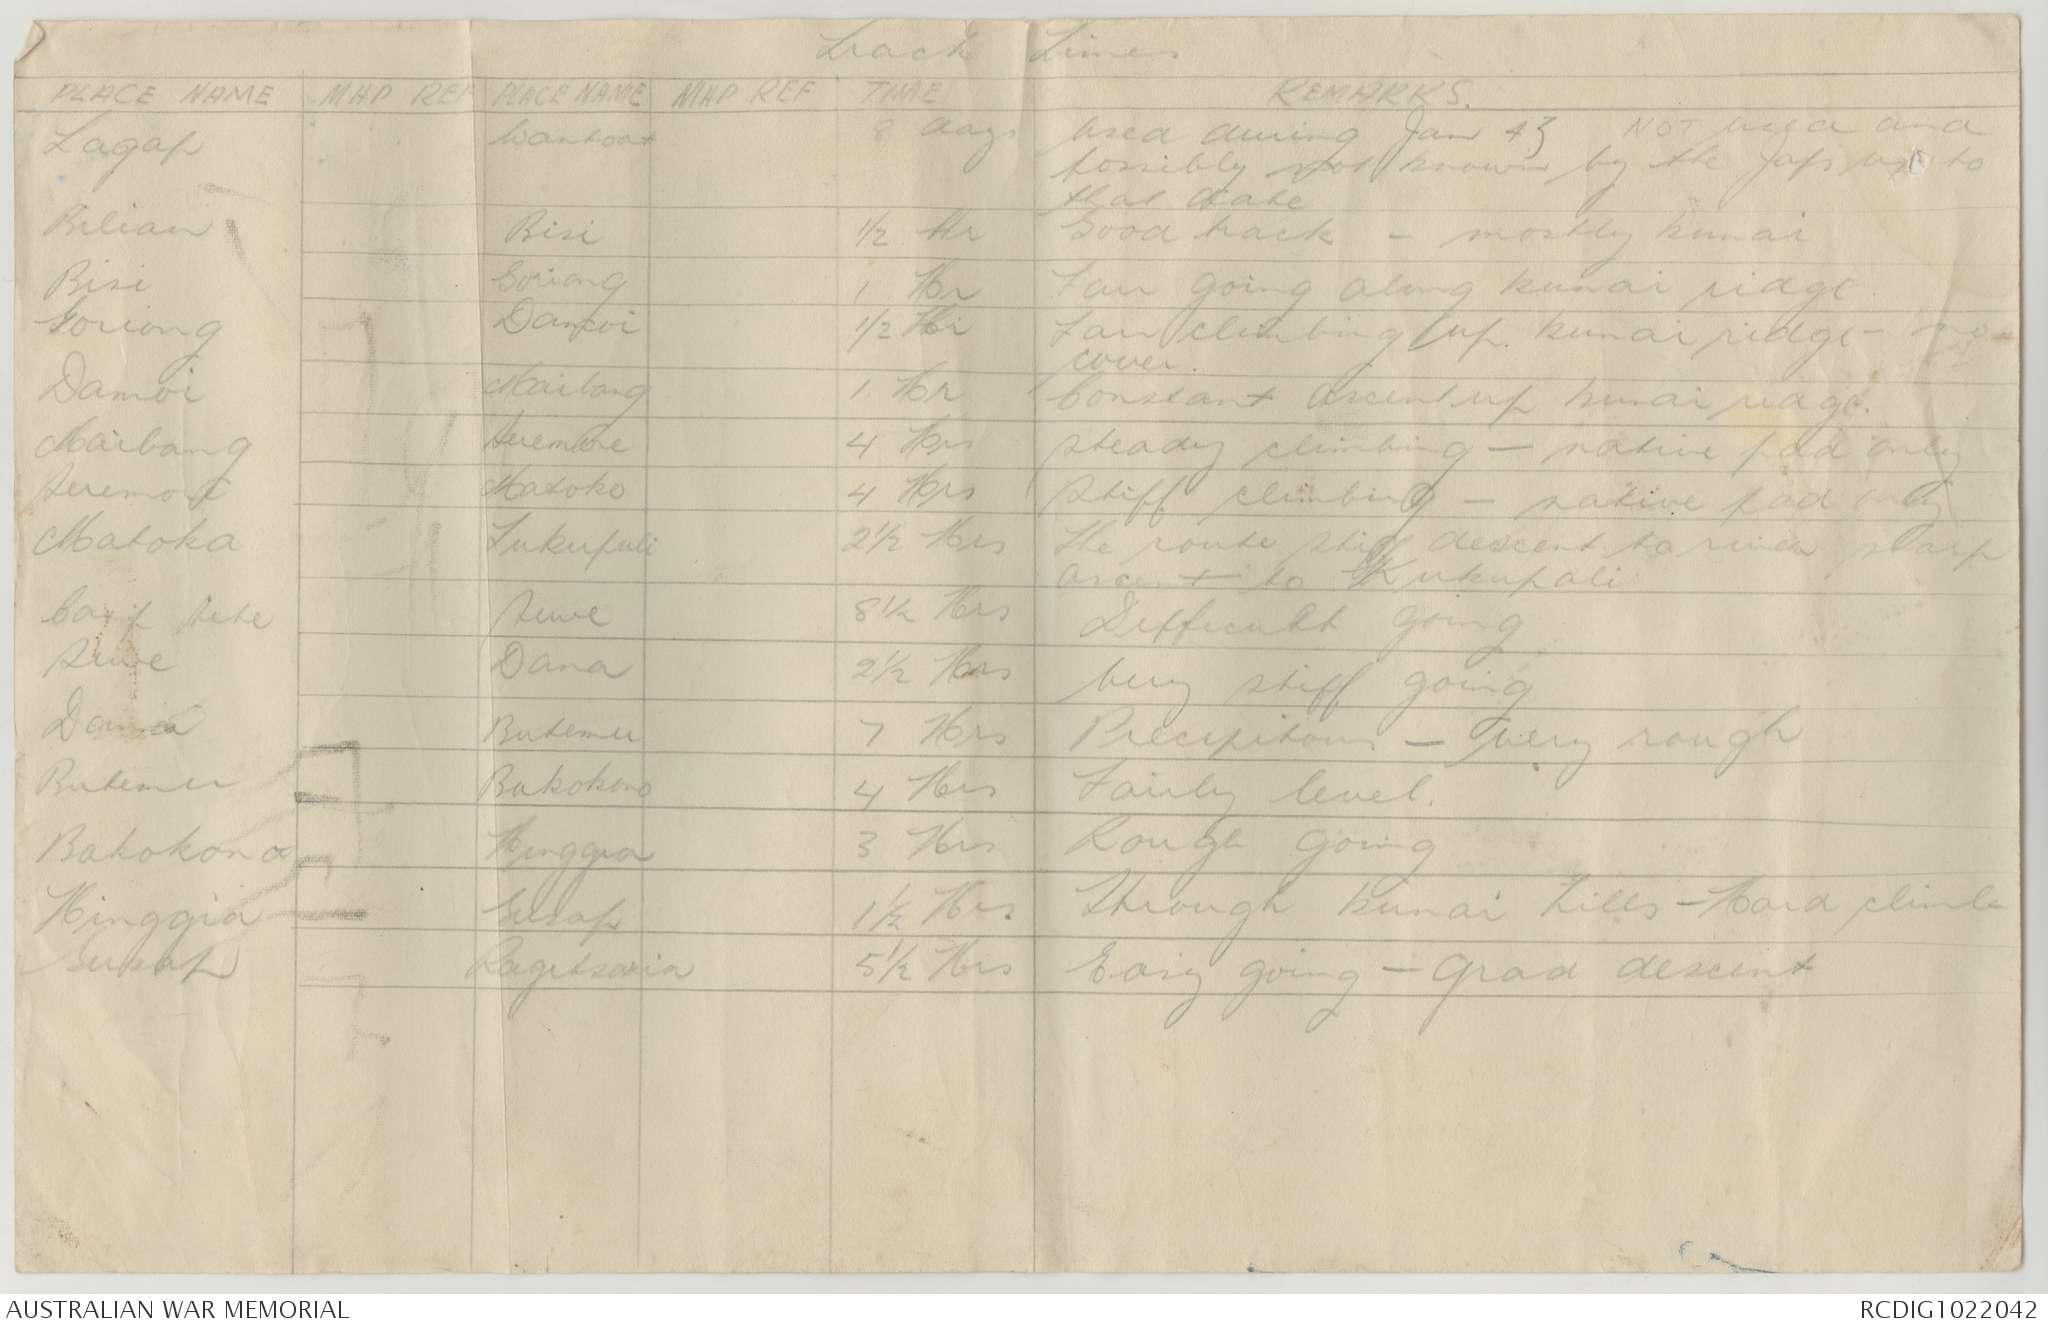 Track Times
PLACE NAME MAP REF PLACE NAME MAP REF TIME REMARKS.
Lagap Wantoat 8 days Used during Jan 43 NOT used and
possibly not known by the Japs up to
that date
Bilian Bisi 1/2 Hr Good track - mostly kunai
Bisi Goriong 1 Hr Fair going along kunai ridge
Goriong Damoi 1/2 Hr Fair climbing up kunai ridge - no
cover.
Damoi Maibang 1 Hr Constant ascent up kunai ridge.
Maibang Seremore 4 Hrs Steady climbing - native pad only
Seremore Matoko 4 Hrs Stiff climbing - native pad only
Matoka Kukupali 2 1/2 Hrs The route stiff descent to river sharp
ascent to Kukupali
Camp Site Suwe 8 1/2 Hrs Difficult going
Suwe Dana 2 1/2 Hrs Very stiff going
Dana Butemu 7 Hrs Precipitous - very rough
Butemu Bakokono 4 Hrs Fairly level.
Bakokona Hinggia 3 Hrs Rough going
Hinggia Gusap 1 1/2 Hrs Through kunai hills - Hard climb
Gusap Ragitsaria 5 1/2 Hrs Easy going - Grad descent
AUSTRALIAN WAR MEMORIAL RCDIG1022042